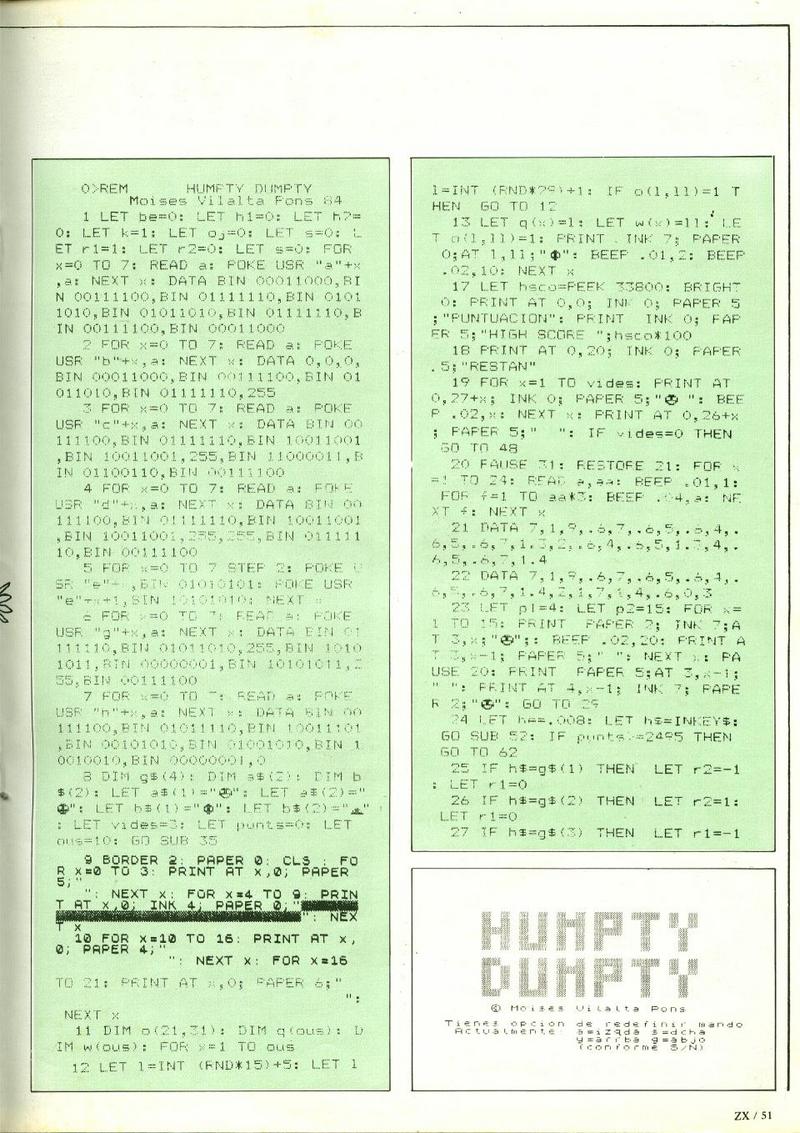 0>REM HUMPTY DUMPTY
Moises Vilalta Pons 84
1 LET be=0: LET h1=0: LET h2=
0: LET k=1: LET oj=0: LET s=0: L
ET r1=1: LET r2=0: LET s=0: FOR
x=0 TO 7: READ a: POKE USR "a"+x
,a: NEXT x: DATA BIN 00011000,BI
N 00111100,BIN 01111110,BIN 0101
1010,BIN 01011010,BIN 01111110,B
IN 00111100,BIN 00011000
2 FOR x=0 TO 7: READ a: POKE
USR "b"+x,a: NEXT x: DATA 0,0,0,
BIN 00011000,BIN 00111100,BIN 01
011010,BIN 01111110,255
3 FOR x=0 TO 7: READ a: POKE
USR "c"+x,a: NEXT x: DATA BIN 00
111100,BIN 01111110,BIN 10011001
,BIN 10011001,255,BIN 11000011,B
IN 01100110,BIN 00111100
4 FOR x=0 TO 7: READ a: POKE
USR "d"+x,a: NEXT x: DATA BIN 00
111100,BIN 01111110,BIN 10011001
,BIN 10011001,255,255,BIN 011111
10,BIN 00111100
5 FOR x=0 TO 7 STEP 2: POKE U
SR "e"+x,BIN 01010101: POKE USR
"e"+x+1,BIN 10101010: NEXT x
6 FOR x=0 TO 7: READ a: POKE
USR "g"+x,a: NEXT x: DATA BIN 01
111110,BIN 01011010,255,BIN 1010
1011,BIN 00000001,BIN 10101011,2
55,BIN 00111100
7 FOR x=0 TO 7: READ a: POKE
USR "h"+x,a: NEXT x: DATA BIN 00
111100,BIN 01011110,BIN 10011101
,BIN 00101010,BIN 01001010,BIN 1
0010010,BIN 00000001,0
8 DIM g$(4): DIM a$(2): DIM b
$(2): LET a$(1)="": LET a$(2)="
": LET b$(1)="": LET b$(2)=""
: LET vides=3: LET punts=0: LET
ous=10: GO SUB 35
9 BORDER 2: PAPER 0: CLS : FO
R x=0 TO 3: PRINT AT x,0; PAPER
5;"
": NEXT x: FOR x=4 TO 9: PRIN
T AT x,0; INK 4; PAPER 0;"
": NEX
T x
10 FOR x=10 TO 16: PRINT AT x,
0; PAPER 4;"
": NEXT x: FOR x=16
TO 21: PRINT AT x,0; PAPER 6;"
":
NEXT x
11 DIM o(21,31): DIM q(ous): D
IM w(ous): FOR x=1 TO ous
12 LET l=INT (RND*15)+5: LET l
1=INT (RND*29)+1: IF o(l,l1)=1 T
HEN GO TO 12
13 LET q(x)=l: LET w(x)=l1: LE
T o(l,l1)=1: PRINT INK 7; PAPER
0;AT l,l1;"": BEEP .01,2: BEEP
.02,10: NEXT x
17 LET hsco=PEEK 33800: BRIGHT
0: PRINT AT 0,0; INK 0; PAPER 5
;"PUNTUACION": PRINT INK 0; PAP
ER 5;"HIGH SCORE ";hsco*100
18 PRINT AT 0,20; INK 0; PAPER
5;"RESTAN"
19 FOR x=1 TO vides: PRINT AT
0,27+x; INK 0; PAPER 5;" ": BEE
P .02,x: NEXT x: PRINT AT 0,26+x
; PAPER 5;" ": IF vides=0 THEN
GO TO 48
20 PAUSE 31: RESTORE 21: FOR x
=1 TO 24: READ a,aa: BEEP .01,1:
FOR f=1 TO aa*3: BEEP .04,a: NE
XT f: NEXT x
21 DATA 7,1,9,.6,7,.6,5,.6,4,.
6,5,.6,7,1.3,2,.6,4,.6,5,1.3,4,.
6,5,.6,7,1.4
22 DATA 7,1,9,.6,7,.6,5,.6,4,.
6,5,.6,7,1.4,2,1,7,1,4,.6,0,3
23 LET p1=4: LET p2=15: FOR x=
1 TO 15: PRINT PAPER 2; INK 7;A
T 3,x;"";: BEEP .02,20: PRINT A
T 3,x-1; PAPER 5;" ": NEXT x: PA
USE 20: PRINT PAPER 5;AT 3,x-1;
" ": PRINT AT 4,x-1; INK 7; PAPE
R 2;"": GO TO 29
24 LET h=.008: LET h$=INKEY$:
GO SUB 52: IF punts>=2495 THEN
GO TO 62
25 IF h$=g$(1) THEN LET r2=-1
: LET r1=0
26 IF h$=g$(2) THEN LET r2=1:
LET r1=0
27 IF h$=g$(3) THEN LET r1=-1
HUMPTY
DUMPTY
© Moises Vilalta Pons
Tienes opcion de redefinir mando
Actualmente: a=izqda s=dcha
y=arrba g=abjo
(conforme S/N)
ZX / 51